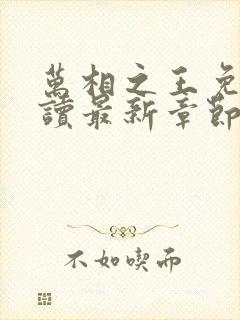 萬相之王免
讀最新章節
不如喫而